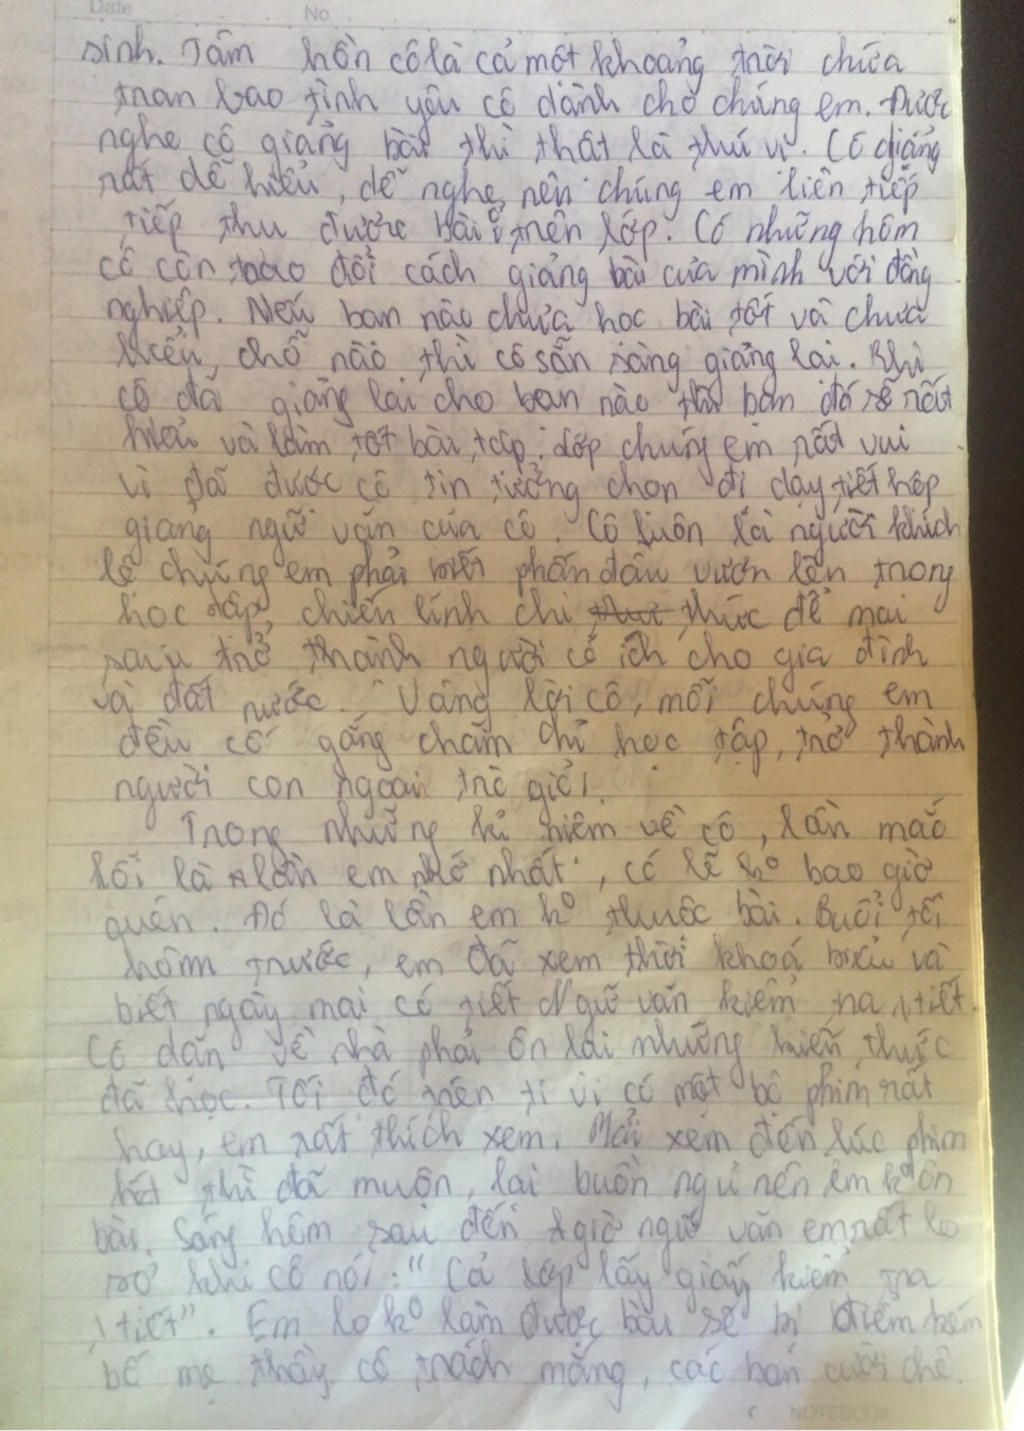 Date No
sinh. Tâm hồn cô là cả một khoảng trời chứa
tran bao tình yêu cô dành cho chúng em. Được
nghe cô giảng bài thì thật là thú vị. Cô giảng
rất dễ hiểu, dễ nghe, nên chúng em liên tiếp
tiếp thu được bài ở trên lớp. Có những hôm
cô còn trao đổi cách giảng bài của mình với đồng
nghiệp. Nếu bạn nào chưa học bài tốt và chưa
hiểu, chỗ nào thì cô sẵn sàng giảng lại. Khi
cô đã giảng lại cho bạn nào thì bạn đó sẽ rất
hiểu và làm tốt bài tập. Lớp chúng em rất vui
vì đã được cô tin tưởng chọn đi dạy tiết hội
giảng ngữ văn của cô. Cô luôn là người khích
lệ chúng em phải biết phấn đấu vươn lên trong
học tập, chiến lính chi thức để mai
sau trở thành người có ích cho gia đình
và đất nước. Vâng lời cô, mỗi chúng em
đều cố gắng chăm chỉ học tập, trở thành
người con ngoan trò giỏi.
Trong những kỉ niệm về cô, lần mắc
lỗi là lần em nhớ nhất, có lẽ k° bao giờ
quên. Đó là lần em k° thuộc bài. Buổi tối
hôm trước, em đã xem thời khoá biểu và
biết ngày mai có tiết Ngữ văn kiểm tra 1 tiết.
Cô dặn về nhà phải ôn lại những kiến thức
đã học. Tối đó trên ti vi có một bộ phim rất
hay, em rất thích xem. Mải xem đến lúc phim
hết thì đã muộn, lại buồn ngủ nên em k° ôn
bài. Sáng hôm sau đến giờ ngữ văn em rất lo
sợ khi cô nói: "Cả lớp lấy giấy kiểm tra
1 tiết". Em lo k° làm được bài sẽ bị điểm kém
bố mẹ thầy cô trách mắng, các bạn cười chê.
NOTEBOOK